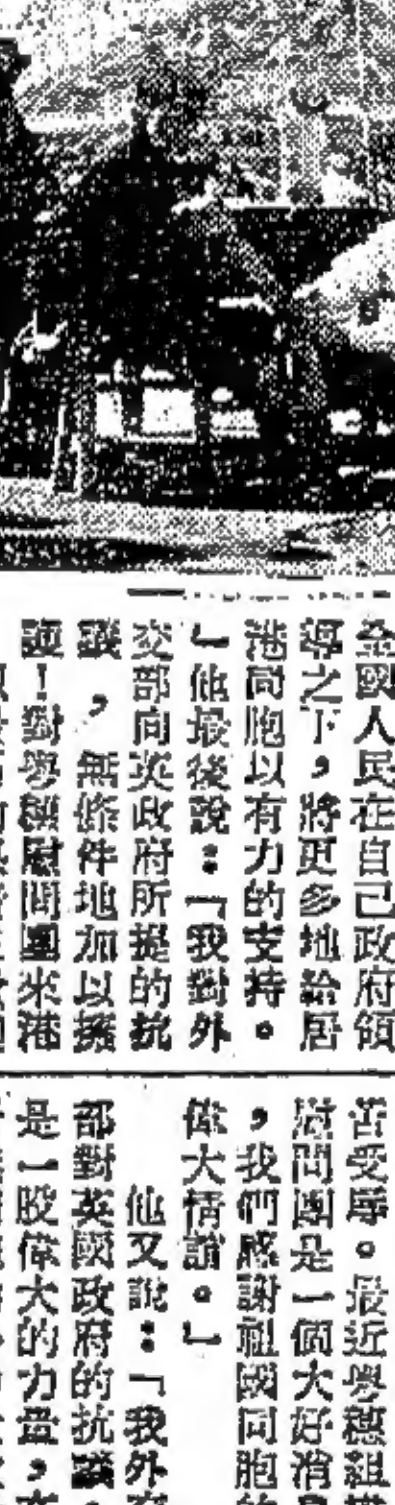 全國人民在自己政府領
導之下，將更多地給居
港同胞以有力的支持。
」他最後說：「我對外
交部向英政府所提的抗
議，無條件地加以擁
護！對粵穗慰問團來港
苦受辱。最近粵穗組
慰問團是一個大好消
，我們感謝祖國同胞
偉大情誼。」
他又說：「我外
部對英國政府的抗議，
是一股偉大的力量，